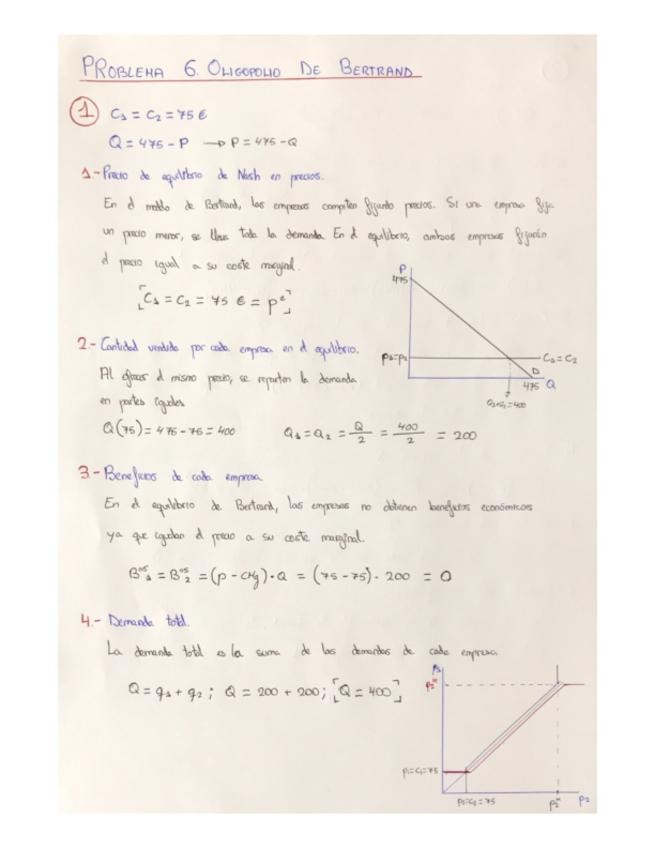 PROBLEMA 6. OLIGOPOLIO DE BERTRAND
1 C1 = C2 = 75 €
Q = 475 - P → P = 475 - Q
1.- Precio de equilibrio de Nash en precios.
En el modelo de Bertrand, las empresas compiten fijando precios. Si una empresa fija
un precio menor, se lleva toda la demanda. En el equilibrio, ambas empresas fijarán
el precio igual a su coste marginal.
[C1 = C2 = 75 € = pe]
P
475
P1=P2
C1 = C2
D
475 Q
Q1+Q2=400
2.- Cantidad vendida por cada empresa en el equilibrio.
Al ofrecer el mismo precio, se reparten la demanda
en partes iguales
Q(75) = 475 - 75 = 400 Q1 = Q2 = Q/2 = 400/2 = 200
3.- Beneficios de cada empresa
En el equilibrio de Bertrand, las empresas no obtienen beneficios económicos
ya que igualan el precio a su coste marginal.
Bº1 = Bº2 = (p - CMg) · Q = (75 - 75) · 200 = 0
4.- Demanda total.
La demanda total es la suma de las demandas de cada empresa.
Q = q1 + q2 ; Q = 200 + 200 ; [Q = 400]
P1
P2m
P1=C1=75
P2=C2=75
P2m P2